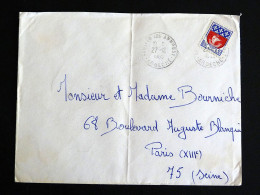 Monsieur et Madame Bourniche
68 Boulevard Auguste Blanqui
Paris (XIIIe)
75 (Seine)